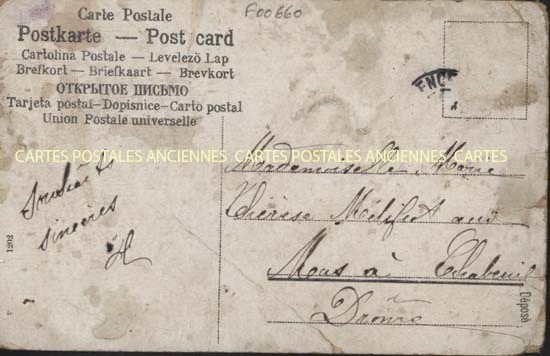 F00660
Carte Postale
Postkarte — Post card
Cartolina Postale — Levelező Lap
Brefkort — Briefkaart — Brevkort
ОТКРЫТОЕ ПИСЬМО
Tarjeta postal—Dopisnice—Carto postal
Union Postale universelle
ENCE
CARTES POSTALES ANCIENNES CARTES POSTALES ANCIENNES CARTES
Souhaits
sincères
H
Mademoiselle Marie
Thérèse aux
Mas à Chabeuil
Drôme
1202
Déposé